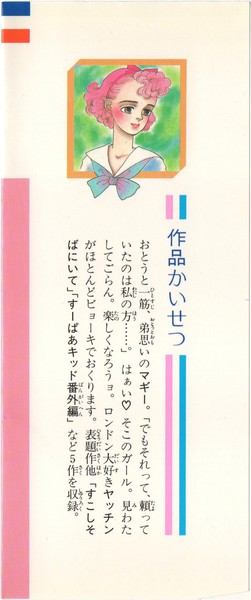 作品かいせつ
おとうと一筋、弟思いのマギー。「でもそれって、頼って
いたのは私の方……。」はぁい♡そこのガール。見わた
してごらん。楽しくなろうョ。ロンドン大好きヤッチン
がほとんどビョーキでおくります。表題作他「すこしそ
ばにいて」「すーぱあキッド番外編」など5作を収録。